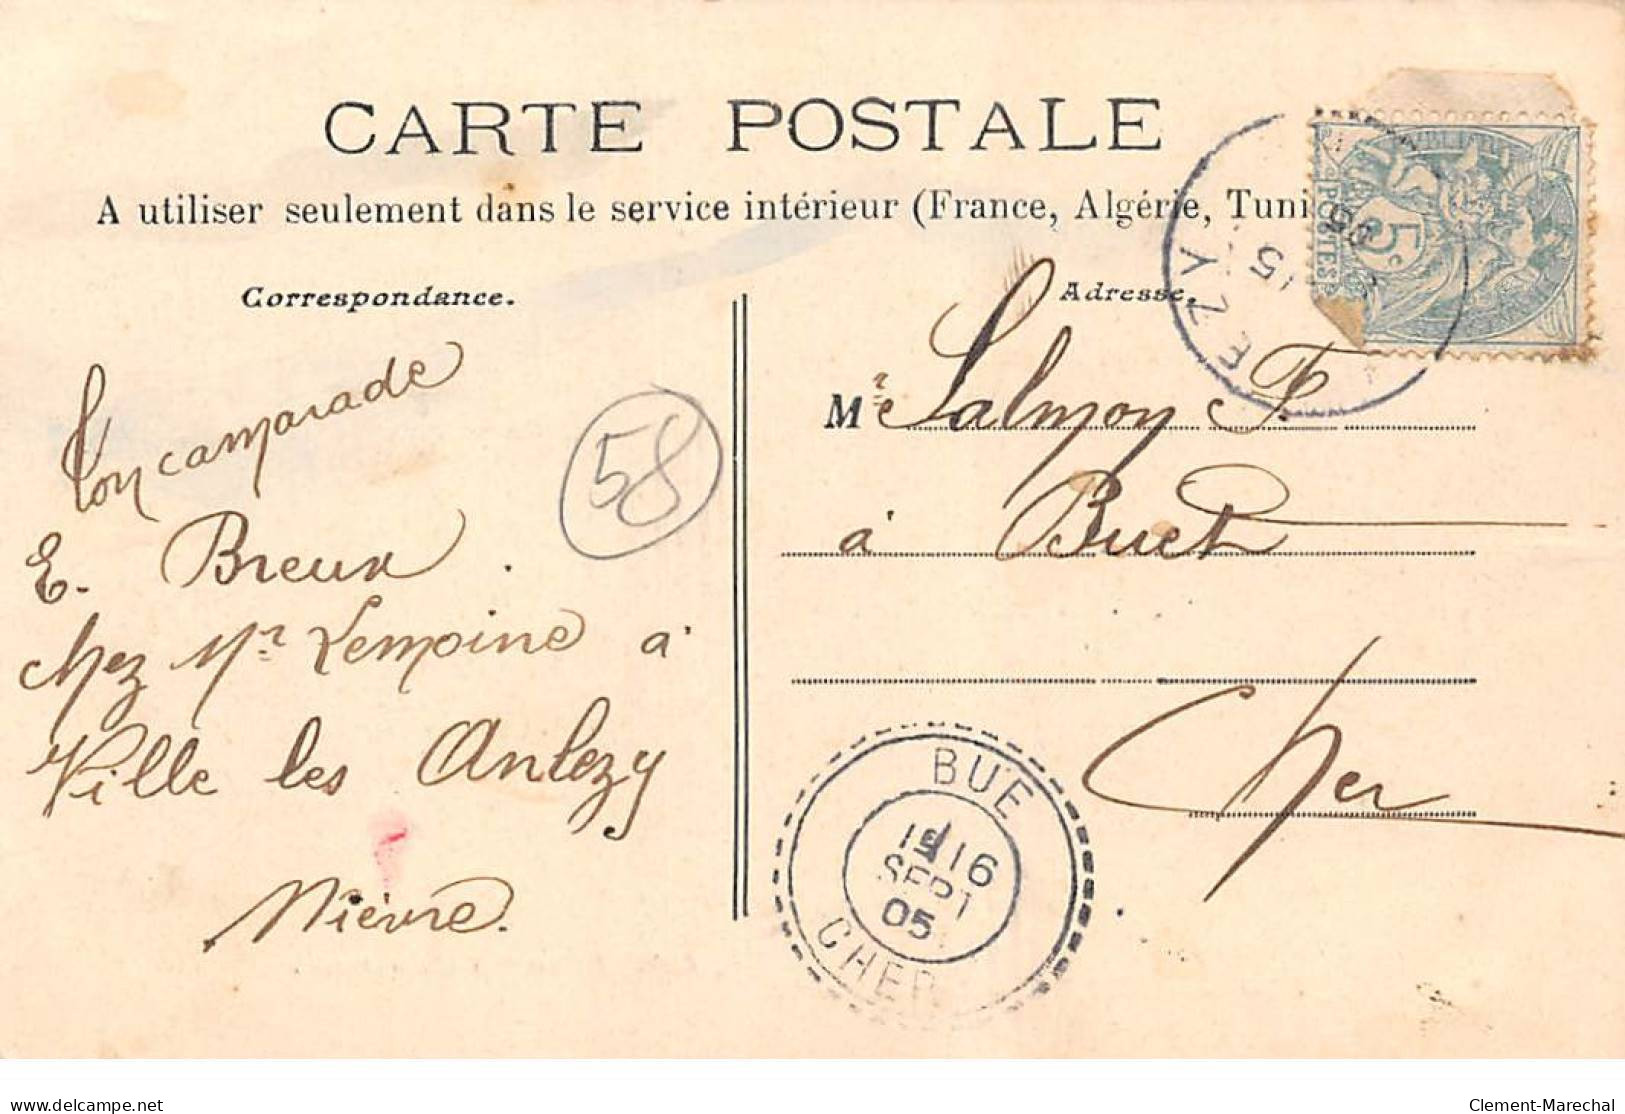 CARTE POSTALE
A utiliser seulement dans le service intérieur (France, Algérie, Tuni
Correspondance.
Ton camarade
E. Breux.
chez Mr Lemoine à
Ville les Anlezy
Nièvre.
58
Adresse.
Mr Salmon F.
à Bué
Cher
POSTES
5c
15
05
EZY
BUE
16
SEPT
05
CHER
delcampe.net
Clement-Marechal